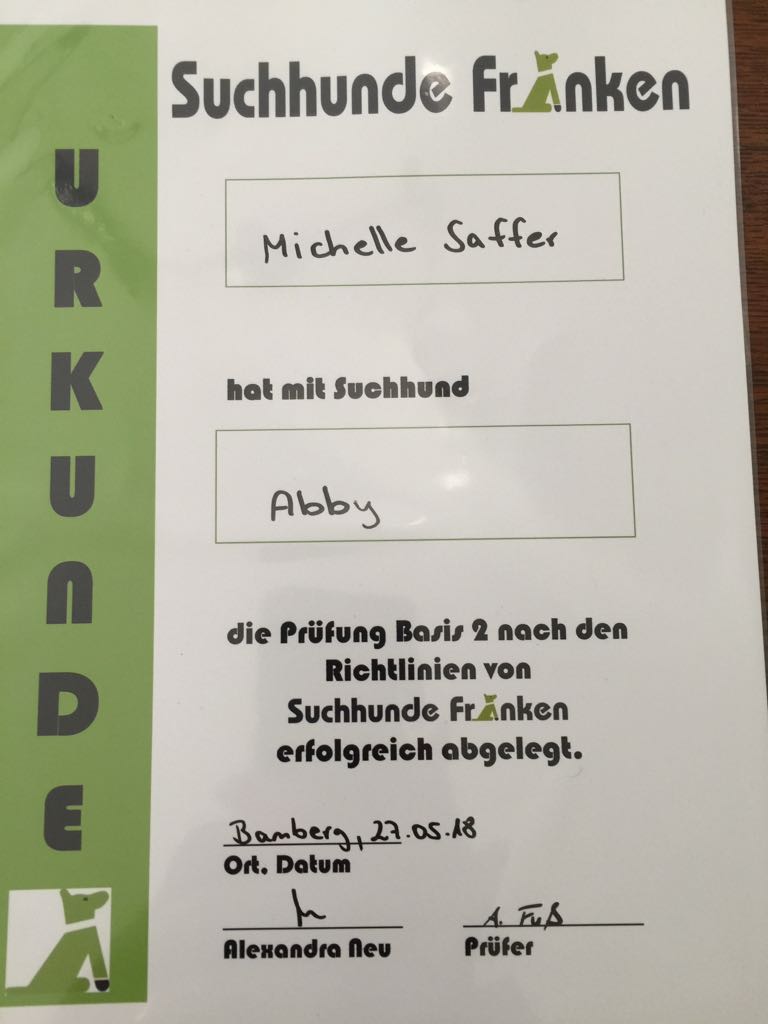 URKUNDE
Suchhunde Franken
Michelle Saffer
hat mit Suchhund
Abby
die Prüfung Basis 2 nach den
Richtlinien von
Suchhunde Franken
erfolgreich abgelegt.
Bamberg, 27.05.18
Ort, Datum
A. Fuß
Alexandra Neu Prüfer